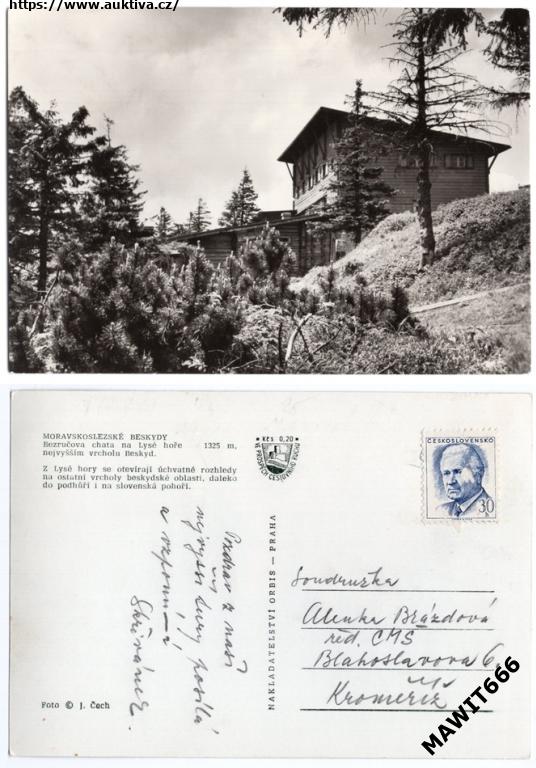 https://www.auktiva.cz/
MORAVSKOSLEZSKÉ BESKYDY
Bezručova chata na Lysé hoře 1325 m,
nejvyšším vrcholu Beskyd.
Z Lysé hory se otevírají úchvatné rozhledy
na ostatní vrcholy beskydské oblasti, daleko
do podhůří i na slovenská pohoří.
KčS 0,20
VE PROSPĚCH CESTOVNÍHO RUCHU
ČESKOSLOVENSKO
30
NAKLADATELSTVÍ ORBIS — PRAHA
Pozdrav z naší
nejvyšší hory posílá
a vzpomíná
Skřivánek.
Soudružka
Alenka Brázdová
red. CMS
Blahoslavova 6
Kroměříž
Foto © J. Čech
MAWIT666